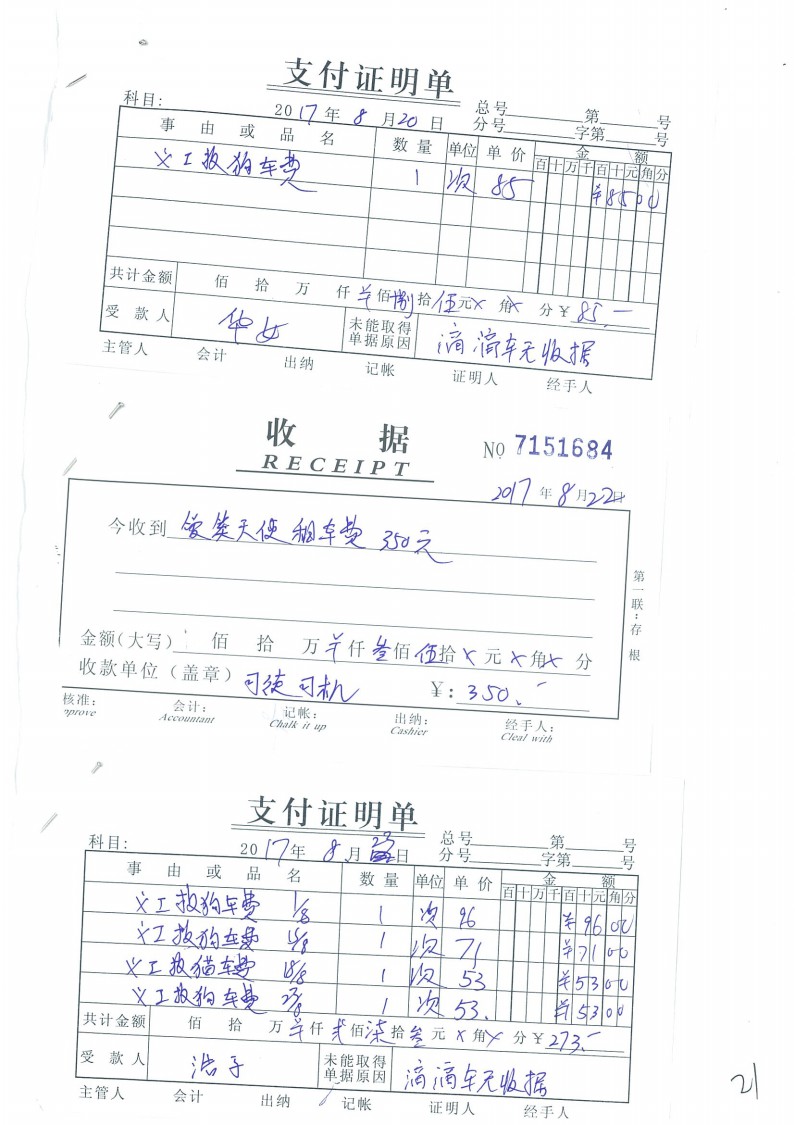 支付证明单
科目: 2017年8月20日 总号 第 号
分号 字第 号
事由或品名 数量 单位 单价 金额
百十万千百十元角分
义工救狗车费 1 次 85 ¥8500
共计金额 佰 拾 万 仟 ¥佰 捌拾 伍元 X角 X分 ¥ 85.-
受款人 华女 未能取得单据原因 滴滴车无收据
主管人 会计 出纳 记帐 证明人 经手人
收据
RECEIPT
NO 7151684
2017年8月22日
今收到 爱莲天使 租车费 350元
第一联:存根
金额(大写) 佰 拾 万 ¥仟 叁佰 伍拾 X元 X角 X分
收款单位(盖章) 司徒司机 ¥: 350.-
核准: 会计: 记帐: 出纳: 经手人:
pprove Accountant Chalk it up Cashier Cleal with
支付证明单
科目: 2017年8月23日 总号 第 号
分号 字第 号
事由或品名 数量 单位 单价 金额
百十万千百十元角分
义工救狗车费 1/8 1 次 96 ¥9600
义工救狗车费 1 次 71 ¥7100
义工救猫车费 18/8 1 次 53 ¥5300
义工救狗车费 1 次 53. ¥5300
共计金额 佰 拾 万 ¥仟 贰佰 柒拾 叁元 X角 X分 ¥ 273.-
受款人 浩子 未能取得单据原因 滴滴车无收据
主管人 会计 出纳 记帐 证明人 经手人
21